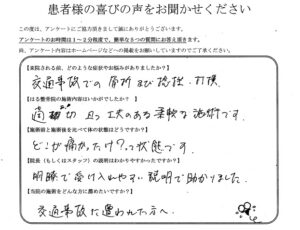 患者様の喜びの声をお聞かせください
この度は、アンケートにご協力頂きまして誠にありがとうございます。
アンケートのお時間は1～2分程度で、簡単な5つの質問にお答え頂きます。
尚、アンケート内容はホームページなどへの掲載をお願いしていますのでご了承ください。
【来院される前、どのような症状やお悩みがありましたか？】
交通事故での骨折及び捻挫、打撲
【はる整骨院の施術内容はいかがでしたか？】
適切且つ工夫のある柔軟な施術です。
【施術前と施術後を比べて体の状態はどうですか？】
どこが痛かったけ？って状態です。
【院長（もしくはスタッフ）の説明はわかりやすかったですか？】
明瞭で受け入れやすい説明で助かりました。
【当院の施術をどんな方に薦めたいですか？】
交通事故に遭われた方へ。